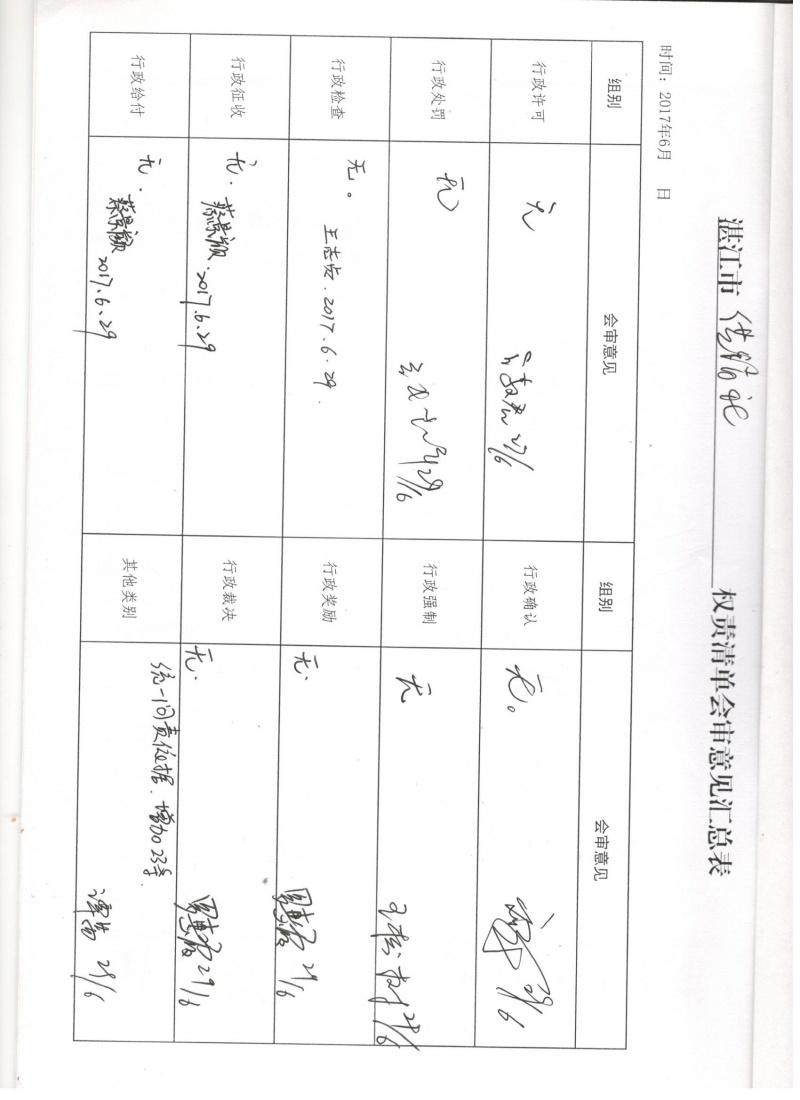 湛江市 供销社 权责清单会审意见汇总表
时间：2017年6月 日
组别 会审意见 组别 会审意见
行政许可 无 27/6 行政确认 无。 29/6
行政处罚 无 29/6 行政强制 无 29/6
行政检查 无。 王志贤.2017.6.29 行政奖励 无. 29/6
行政征收 无. 2017.6.29 行政裁决 无. 29/6
行政给付 无. 2017.6.29 其他类别 统一问责依据.增加23条. 29/6